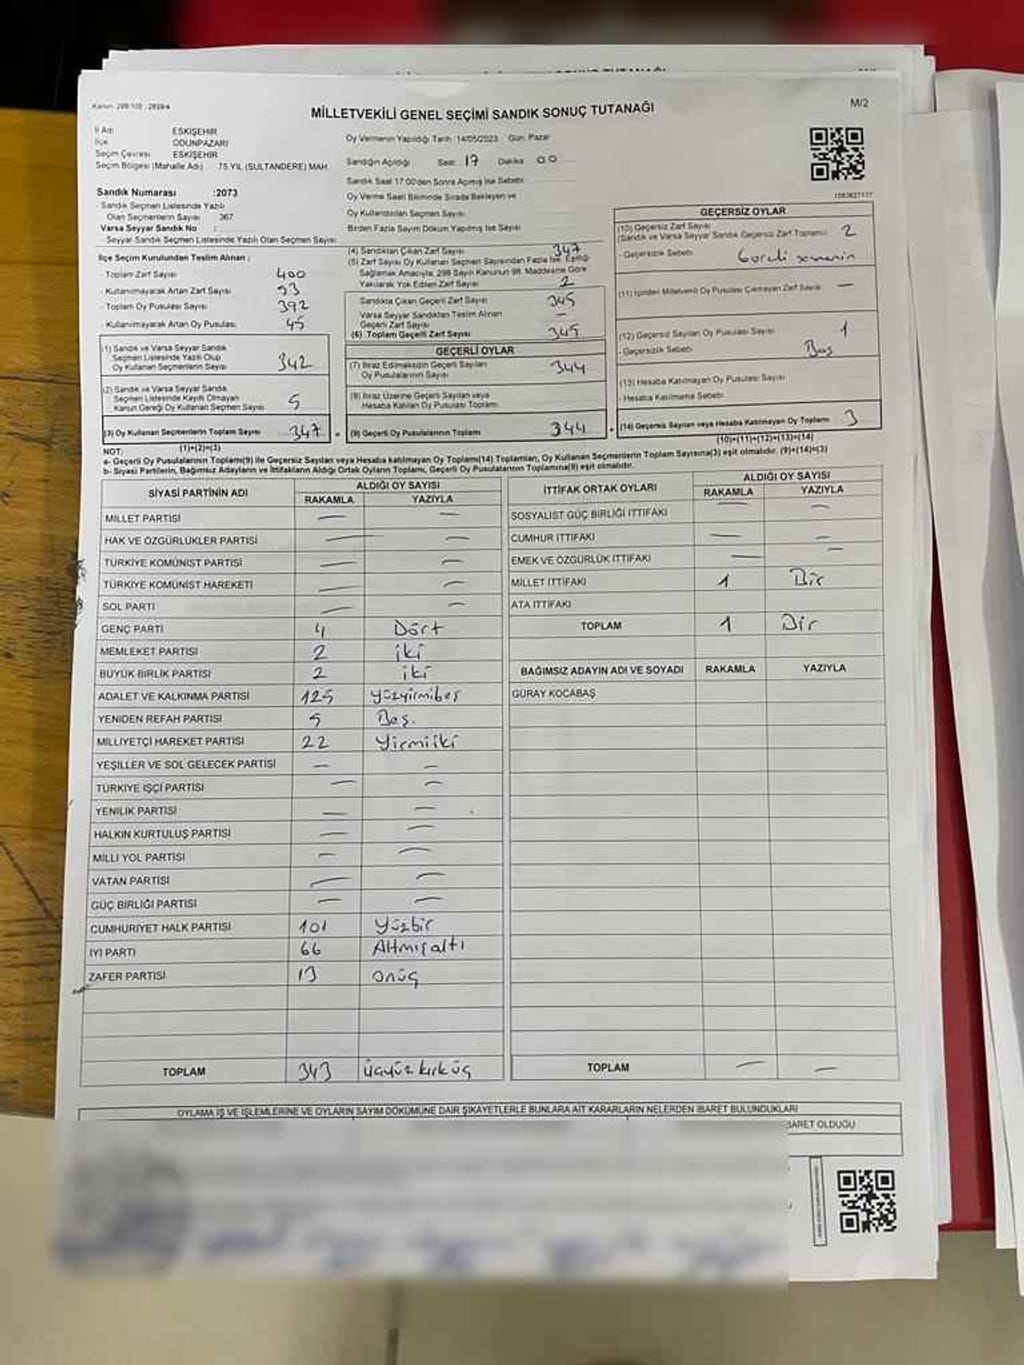 MİLLETVEKİLİ GENEL SEÇİMİ SANDIK SONUÇ TUTANAĞI
M/2
İl Adı ESKİŞEHİR
İlçe ODUNPAZARI
Seçim Çevresi ESKİŞEHİR
Seçim Bölgesi (Mahalle Adı) 75.YIL (SULTANDERE) MAH.
Oy Vermenin Yapıldığı Tarih :14/05/2023 Gün: Pazar
Sandığın Açıldığı Saat: 17 Dakika 00
Sandık Saat 17:00'den Sonra Açılmış İse Sebebi
Sandık Numarası :2073
- Sandık Seçmen Listesinde Yazılı
Olan Seçmenlerin Sayısı 367
Varsa Seyyar Sandık No :
- Seyyar Sandık Seçmen Listesinde Yazılı Olan Seçmen Sayısı
Oy Verme Saati Bitiminde Sırada Bekleyen ve
Oy Kullandırılan Seçmen Sayısı
Birden Fazla Sayım Döküm Yapılmış İse Sayısı
İlçe Seçim Kurulundan Teslim Alınan :
- Toplam Zarf Sayısı 400
- Kullanılmayarak Artan Zarf Sayısı 53
- Toplam Oy Pusulası Sayısı 392
- Kullanılmayarak Artan Oy Pusulası 45
(1) Sandık ve Varsa Seyyar Sandık
Seçmen Listesinde Yazılı Olup
Oy Kullanan Seçmenlerin Sayısı 342
(2) Sandık ve Varsa Seyyar Sandık
Seçmen Listesinde Kayıtlı Olmayan
Kanun Gereği Oy Kullanan Seçmen Sayısı 5
(3) Oy Kullanan Seçmenlerin Toplam Sayısı 347
(1)+(2)=(3)
(4) Sandıktan Çıkan Zarf Sayısı 347
(5) Zarf Sayısı Oy Kullanan Seçmen Sayısından Fazla İse, Eşitliği
Sağlamak Amacıyla, 298 Sayılı Kanunun 98. Maddesine Göre
Yakılarak Yok Edilen Zarf Sayısı 2
Sandıkta Çıkan Geçerli Zarf Sayısı 345
Varsa Seyyar Sandıktan Teslim Alınan
Geçerli Zarf Sayısı —
(6) Toplam Geçerli Zarf Sayısı 345
GEÇERLİ OYLAR
(7) İtiraz Edilmeksizin Geçerli Sayılan
Oy Pusulalarının Sayısı 344
(8) İtiraz Üzerine Geçerli Sayılan veya
Hesaba Katılan Oy Pusulası Toplamı
(9) Geçerli Oy Pusulalarının Toplamı 344
GEÇERSİZ OYLAR
(10) Geçersiz Zarf Sayısı
(Sandık ve Varsa Seyyar Sandık Geçersiz Zarf Toplamı) 2
- Geçersizlik Sebebi
(11) İçinden Milletvekili Oy Pusulası Çıkmayan Zarf Sayısı —
(12) Geçersiz Sayılan Oy Pusulası Sayısı 1
- Geçersizlik Sebebi Boş
(13) Hesaba Katılmayan Oy Pusulası Sayısı
- Hesaba Katılmama Sebebi
(14) Geçersiz Sayılan veya Hesaba Katılmayan Oy Toplamı 3
(10)+(11)+(12)+(13)=(14)
NOT:
a- Geçerli Oy Pusulalarının Toplamı(9) ile Geçersiz Sayılan veya Hesaba katılmayan Oy Toplamı(14) Toplamları, Oy Kullanan Seçmenlerin Toplam Sayısına(3) eşit olmalıdır. (9)+(14)=(3)
b- Siyasi Partilerin, Bağımsız Adayların ve İttifakların Aldığı Ortak Oyların Toplamı, Geçerli Oy Pusulalarının Toplamına(9) eşit olmalıdır.
SİYASİ PARTİNİN ADI ALDIĞI OY SAYISI
RAKAMLA YAZIYLA
MİLLET PARTİSİ — —
HAK VE ÖZGÜRLÜKLER PARTİSİ — —
TÜRKİYE KOMÜNİST PARTİSİ — —
TÜRKİYE KOMÜNİST HAREKETİ — —
SOL PARTİ — —
GENÇ PARTİ 4 Dört
MEMLEKET PARTİSİ 2 iki
BÜYÜK BİRLİK PARTİSİ 2 iki
ADALET VE KALKINMA PARTİSİ 125 Yüzyirmibeş
YENİDEN REFAH PARTİSİ 5 Beş.
MİLLİYETÇİ HAREKET PARTİSİ 22 Yirmiiki
YEŞİLLER VE SOL GELECEK PARTİSİ — —
TÜRKİYE İŞÇİ PARTİSİ — —
YENİLİK PARTİSİ — —
HALKIN KURTULUŞ PARTİSİ — —
MİLLİ YOL PARTİSİ — —
VATAN PARTİSİ — —
GÜÇ BİRLİĞİ PARTİSİ — —
CUMHURİYET HALK PARTİSİ 101 Yüzbir
İYİ PARTİ 66 Altmışaltı
ZAFER PARTİSİ 13 onüç
TOPLAM 343 üçyüzkırküç
İTTİFAK ORTAK OYLARI ALDIĞI OY SAYISI
RAKAMLA YAZIYLA
SOSYALİST GÜÇ BİRLİĞİ İTTİFAKI — —
CUMHUR İTTİFAKI — —
EMEK VE ÖZGÜRLÜK İTTİFAKI — —
MİLLET İTTİFAKI 1 Bir
ATA İTTİFAKI
TOPLAM 1 Bir
BAĞIMSIZ ADAYIN ADI VE SOYADI RAKAMLA YAZIYLA
GÜRAY KOCABAŞ
TOPLAM — —
OYLAMA İŞ VE İŞLEMLERİNE VE OYLARIN SAYIM DÖKÜMÜNE DAİR ŞİKAYETLERLE BUNLARA AİT KARARLARIN NELERDEN İBARET BULUNDUKLARI
BARET OLDUĞU